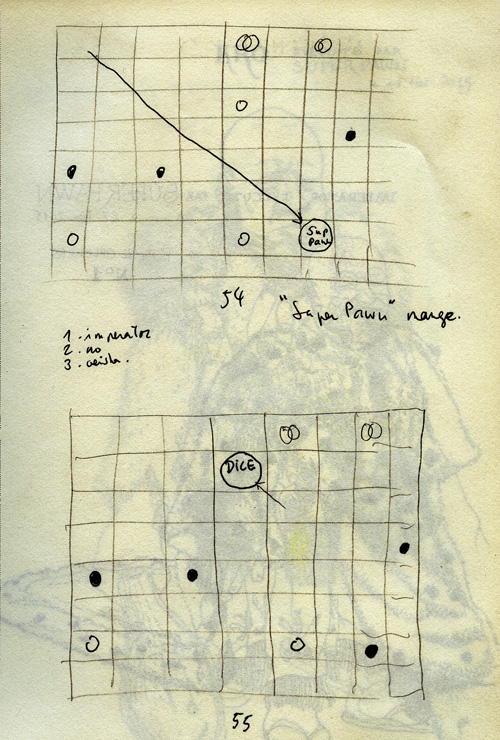 Sup
Pawn
54
"Super Pawn" range.
1. imperator
2. no
3.
DICE
55